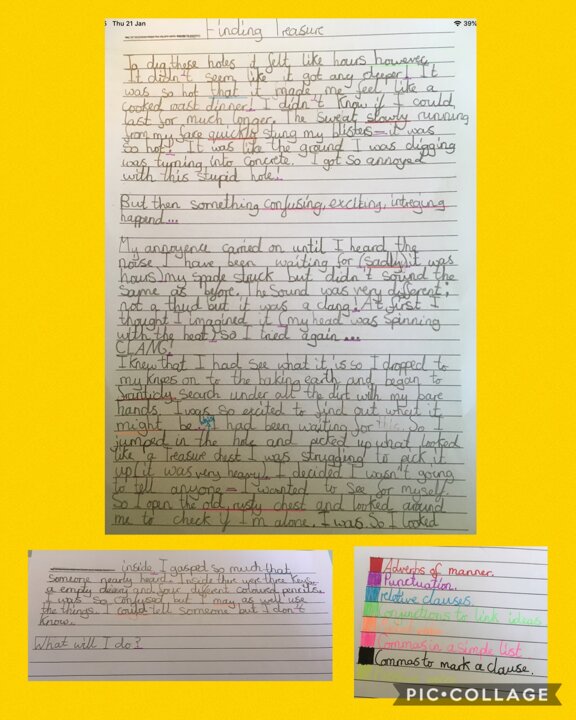 Thu 21 Jan
39%
Finding Treasure
To dig these holes it felt like hours however
it didn't seem like it got any deeper! It
was so hot that it made me feel like a
cooked roast dinner! I didn't know if I could
last for much longer. The sweat slowly running
from my face quickly stung my blisters - it was
so hot! It was like the ground I was digging
was turning into concrete. I got so annoyed
with this stupid hole!
But then something confusing, exciting, intreging
happend...
My annoyence carried on until I heard the
noise I have been waiting for (sadly it was
hours) my spade struck but didn't sound the
same as before. The sound was very different;
not a thud but it was a clang! At first I
thought I imagined it (my head was spinning
with the heat) so I tried again ...
CLANG!
I knew that I had see what it is so I dropped to
my knees on to the baking earth and began to
frantidly search under all the dirt with my bare
hands. I was so excited to find out what it
might be. I had been waiting for this. So I
jumped in the hole and picked up what looked
like a treasure chest I was struggling to pick it
up (it was very heavy). I decided I wasn't going
to tell anyone - I wanted to see for myself.
So I open the old, rusty chest and looked around
me to check if I'm alone. I was. So I looked
inside. I gasped so much that
someone nearly heard. Inside there were three keys,
a empty diary and four different coloured pencils.
I was so confused but I may as well use
the things. I could tell someone but I don't
know.
What will I do?
Adverbs of manner.
Punctuation.
relative clauses.
Conjunctions to link ideas
Commas in a simple list
Commas to mark a clause.
PIC•COLLAGE